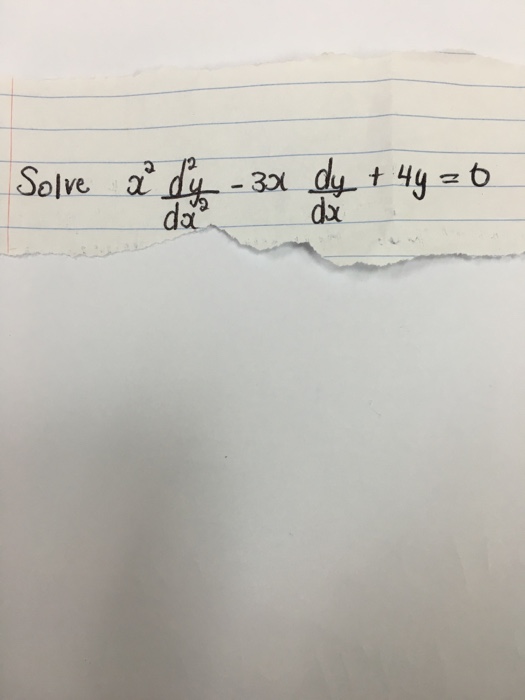 Solve x² d²y/dx² - 3x dy/dx + 4y = 0